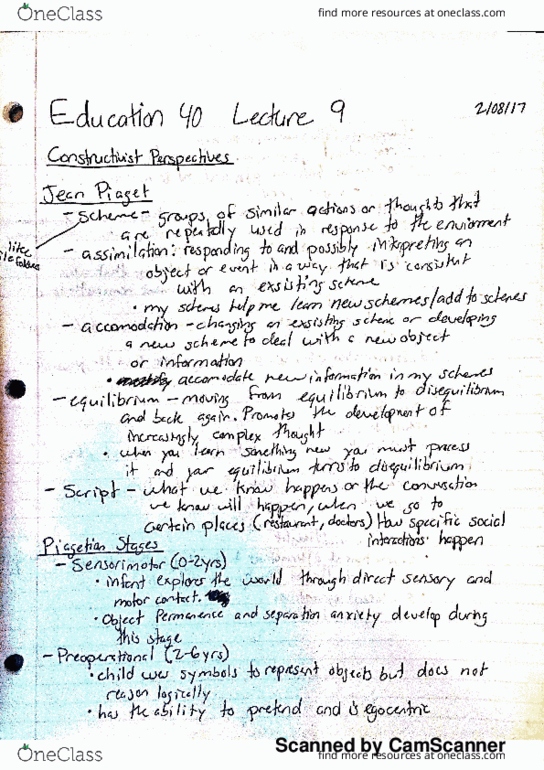 OneClass
find more resources at oneclass.com
Education 40 Lecture 9
2/08/17
Constructivist Perspectives
Jean Piaget
- Scheme - groups of similar actions or thoughts that
are repeatally used in response to the enviorment
like
file folders
- assimilation: responding to and possibly interpreting an
object or event in a way that is consistent
with an exsisting scheme
• my schemes help me learn new schemes/add to schemes
- accomodation - changing an exsisting scheme or developing
a new scheme to deal with a new object
or information
• accomodate new information in my schemes
- equilibrium - moving from equilibrium to disequilibrium
and back again. Promotes the development of
increasingly complex thought
• when you learn something new you must process
it and your equilibrium turns to disequilibrium
- Script - what we know happens or the conversation
we know will happen, when we go to
certain places (restaurant, doctors) How specific social
interactions happen
Piagetian Stages
- Sensorimotor (0-2yrs)
• infant explores the world through direct sensory and
motor contact.
• Object Permanence and separation anxiety develop during
this stage
- Preoperational (2-6yrs)
• child uses symbols to represent objects but does not
reason logically
• has the ability to pretend and is egocentric
Scanned by CamScanner
OneClass
find more resources at oneclass.com